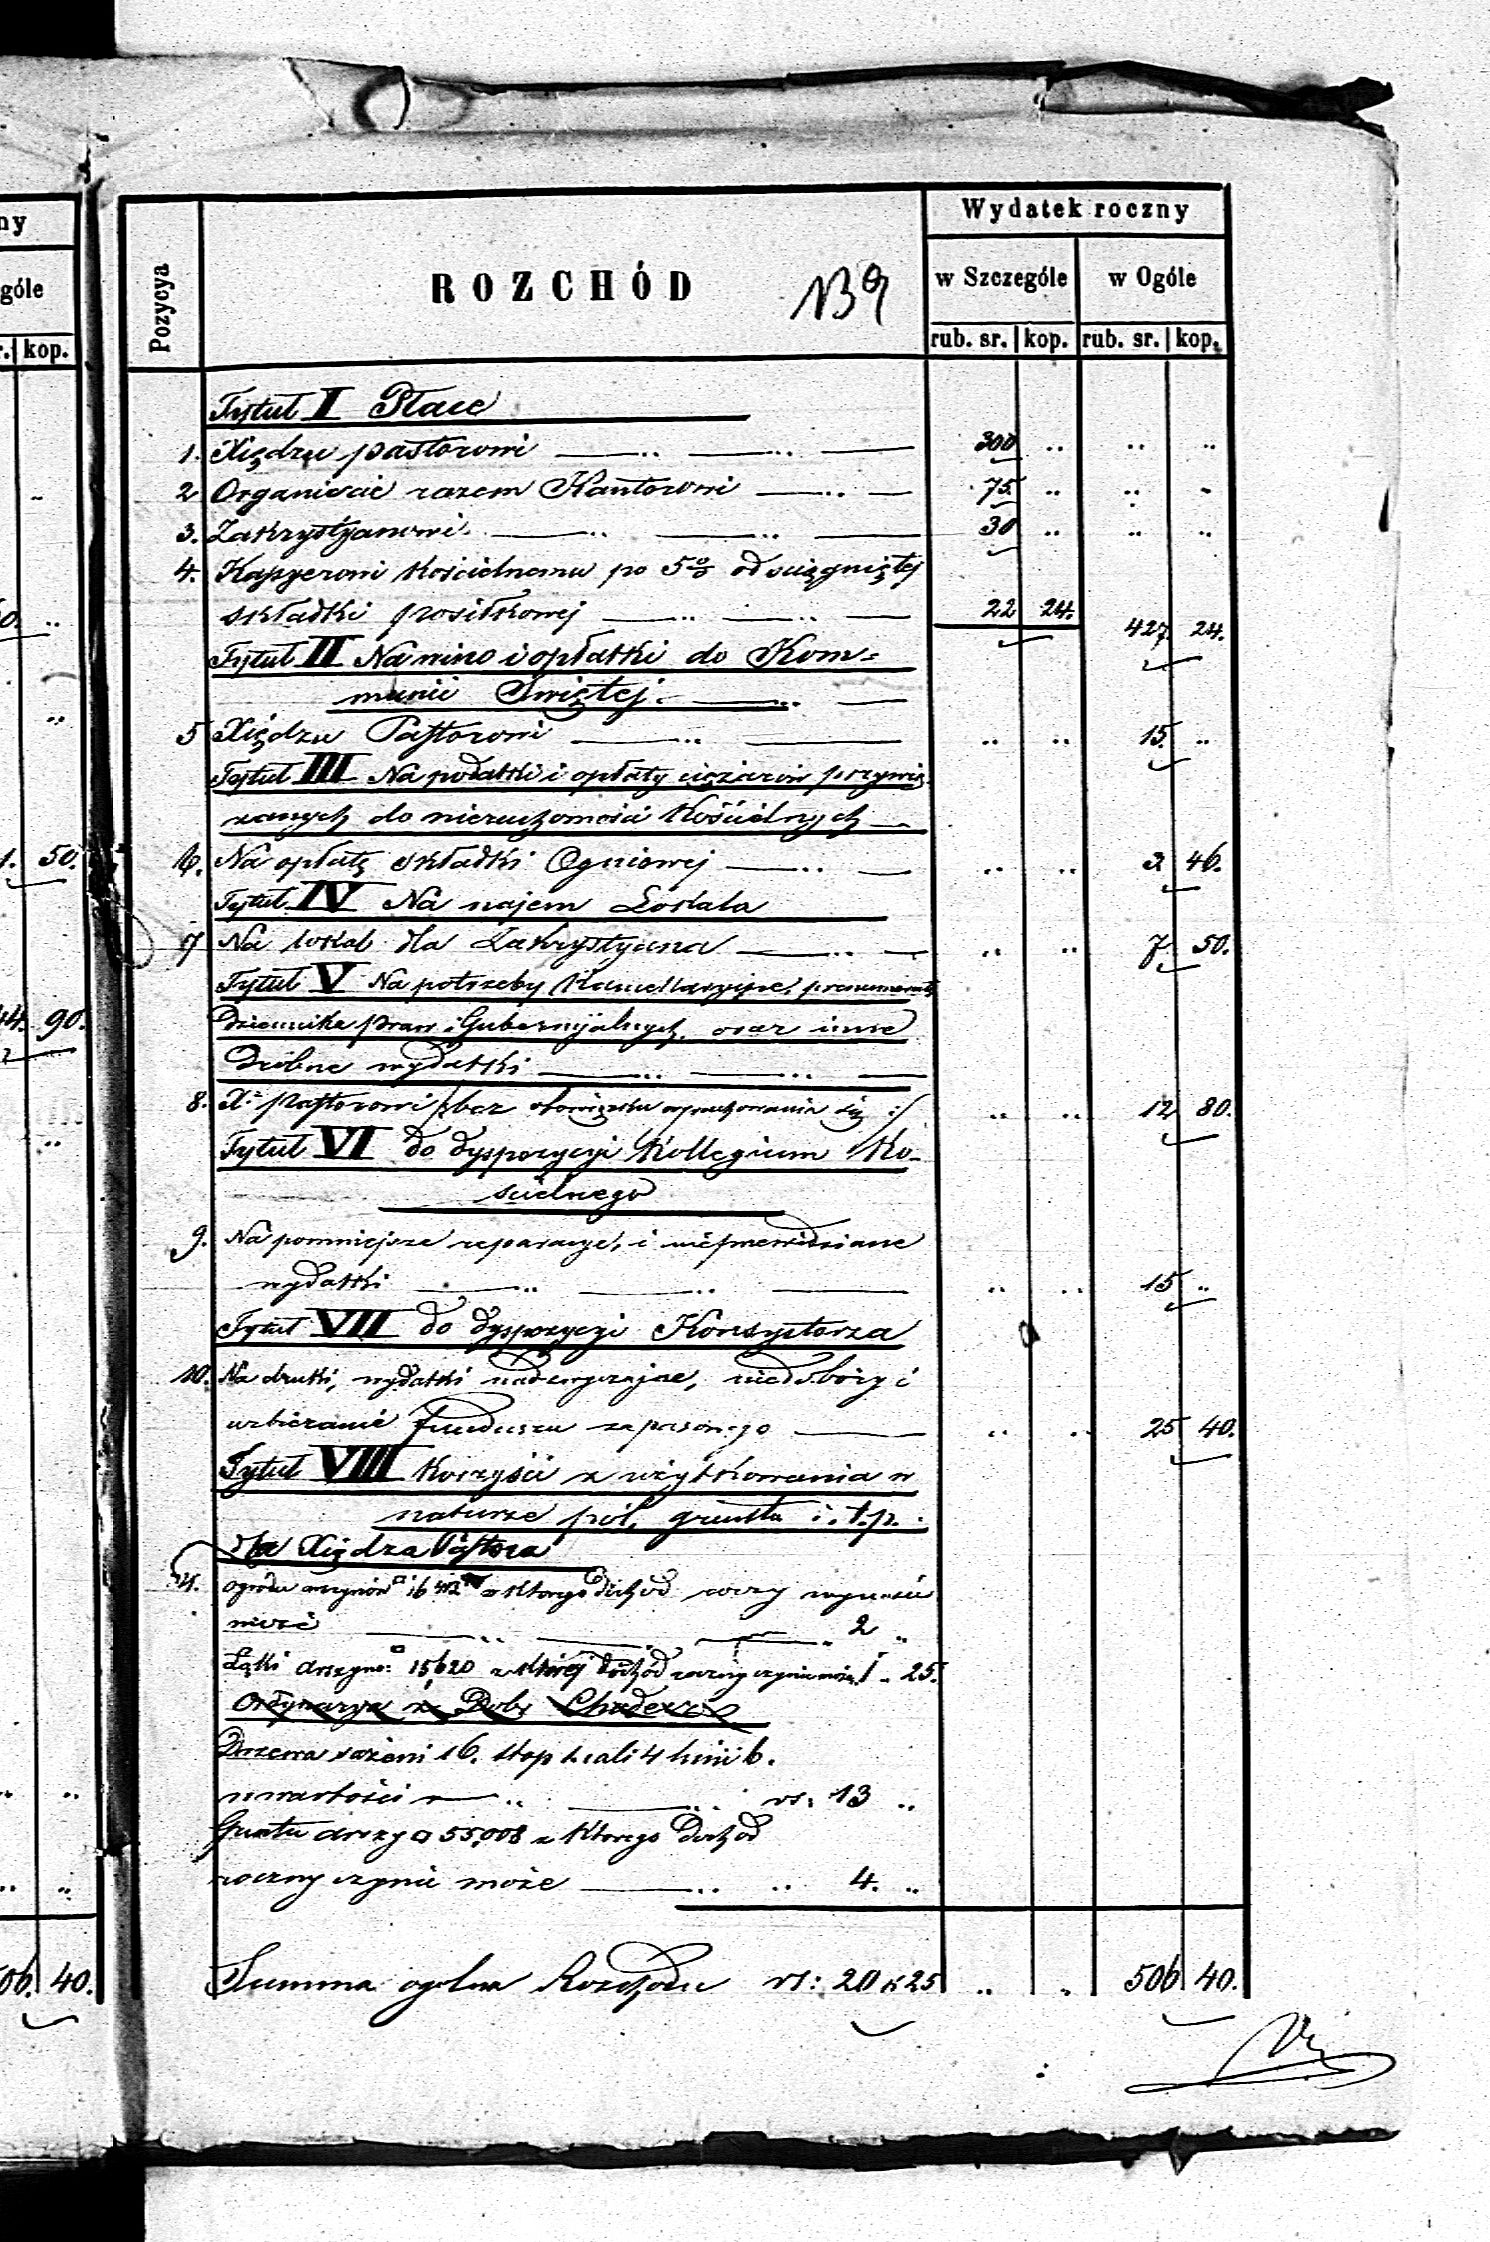 ny
góle
r. kop.
50.
44. 90.
506. 40.
Pozycya
ROZCHÓD
139
Wydatek roczny
w Szczególe w Ogóle
rub. sr. kop. rub. sr. kop.
Tytuł I Płace
1. Xiędzu pastorowi 300 .. .. ..
2 Organiście razem Kantorowi 75 .. .. ..
3. Zakrystyanowi 30 .. .. ..
4. Kassyerowi kościelnemu po 5% od ściągniętej
składki posiłkowej 22 24. 427 24.
Tytuł II Na wino i opłatki do Kom=
munii Swiętej.
5 Xiędzu Pastorowi .. .. 15. ..
Tytuł III Na podatki i opłaty ciężarów przywią
zanych do nieruchomości Kościelnych
6. Na opłatę składki Ogniowej .. .. 2 46.
Tytuł IV Na najem Lokala
7 Na lokal dla Zakrystyana .. .. 7 50.
Tytuł V Na potrzeby Kancellaryjne, prenumeratę
Dziennika praw i Gubernijalnych, oraz inne
Drobne wydatki
8. X. Pastorowi /:bez obowiązku wyrachowania się :/ .. .. 12 80.
Tytuł VI do dyspozycyi Kollegium Ko-
scielnego
9. Na pomniejsze reparacye, i nieprzewidziane
wydatki .. .. 15 ..
Tytuł VII do dyspozycyi Konsystorza
10. Na druki, wydatki nadzwyczajne, niedobory i
uzbieranie funduszu zapasowego .. .. 25 40.
Tytuł VIII Korzyści z użytkowania w
naturze pól, gruntu i. t. p.
dla Xiędza Pastora
11. ogrodu arszynów □ z którego dochód roczny wynosić
może 2 ..
Łąki arszyn: □ 15620 z której dochód roczny czynić może 1 .. 25.
Ordynarya z Dobr
Drzewa sążeni 16. stop 2 cali 4 linii 6.
wartości rs: 13 ..
Gruntu arszy □ 55,008 z którego dochód
roczny czynić może 4. ..
Summa ogolna Rozchodu rs: 20 k 25 .. .. 506 40.